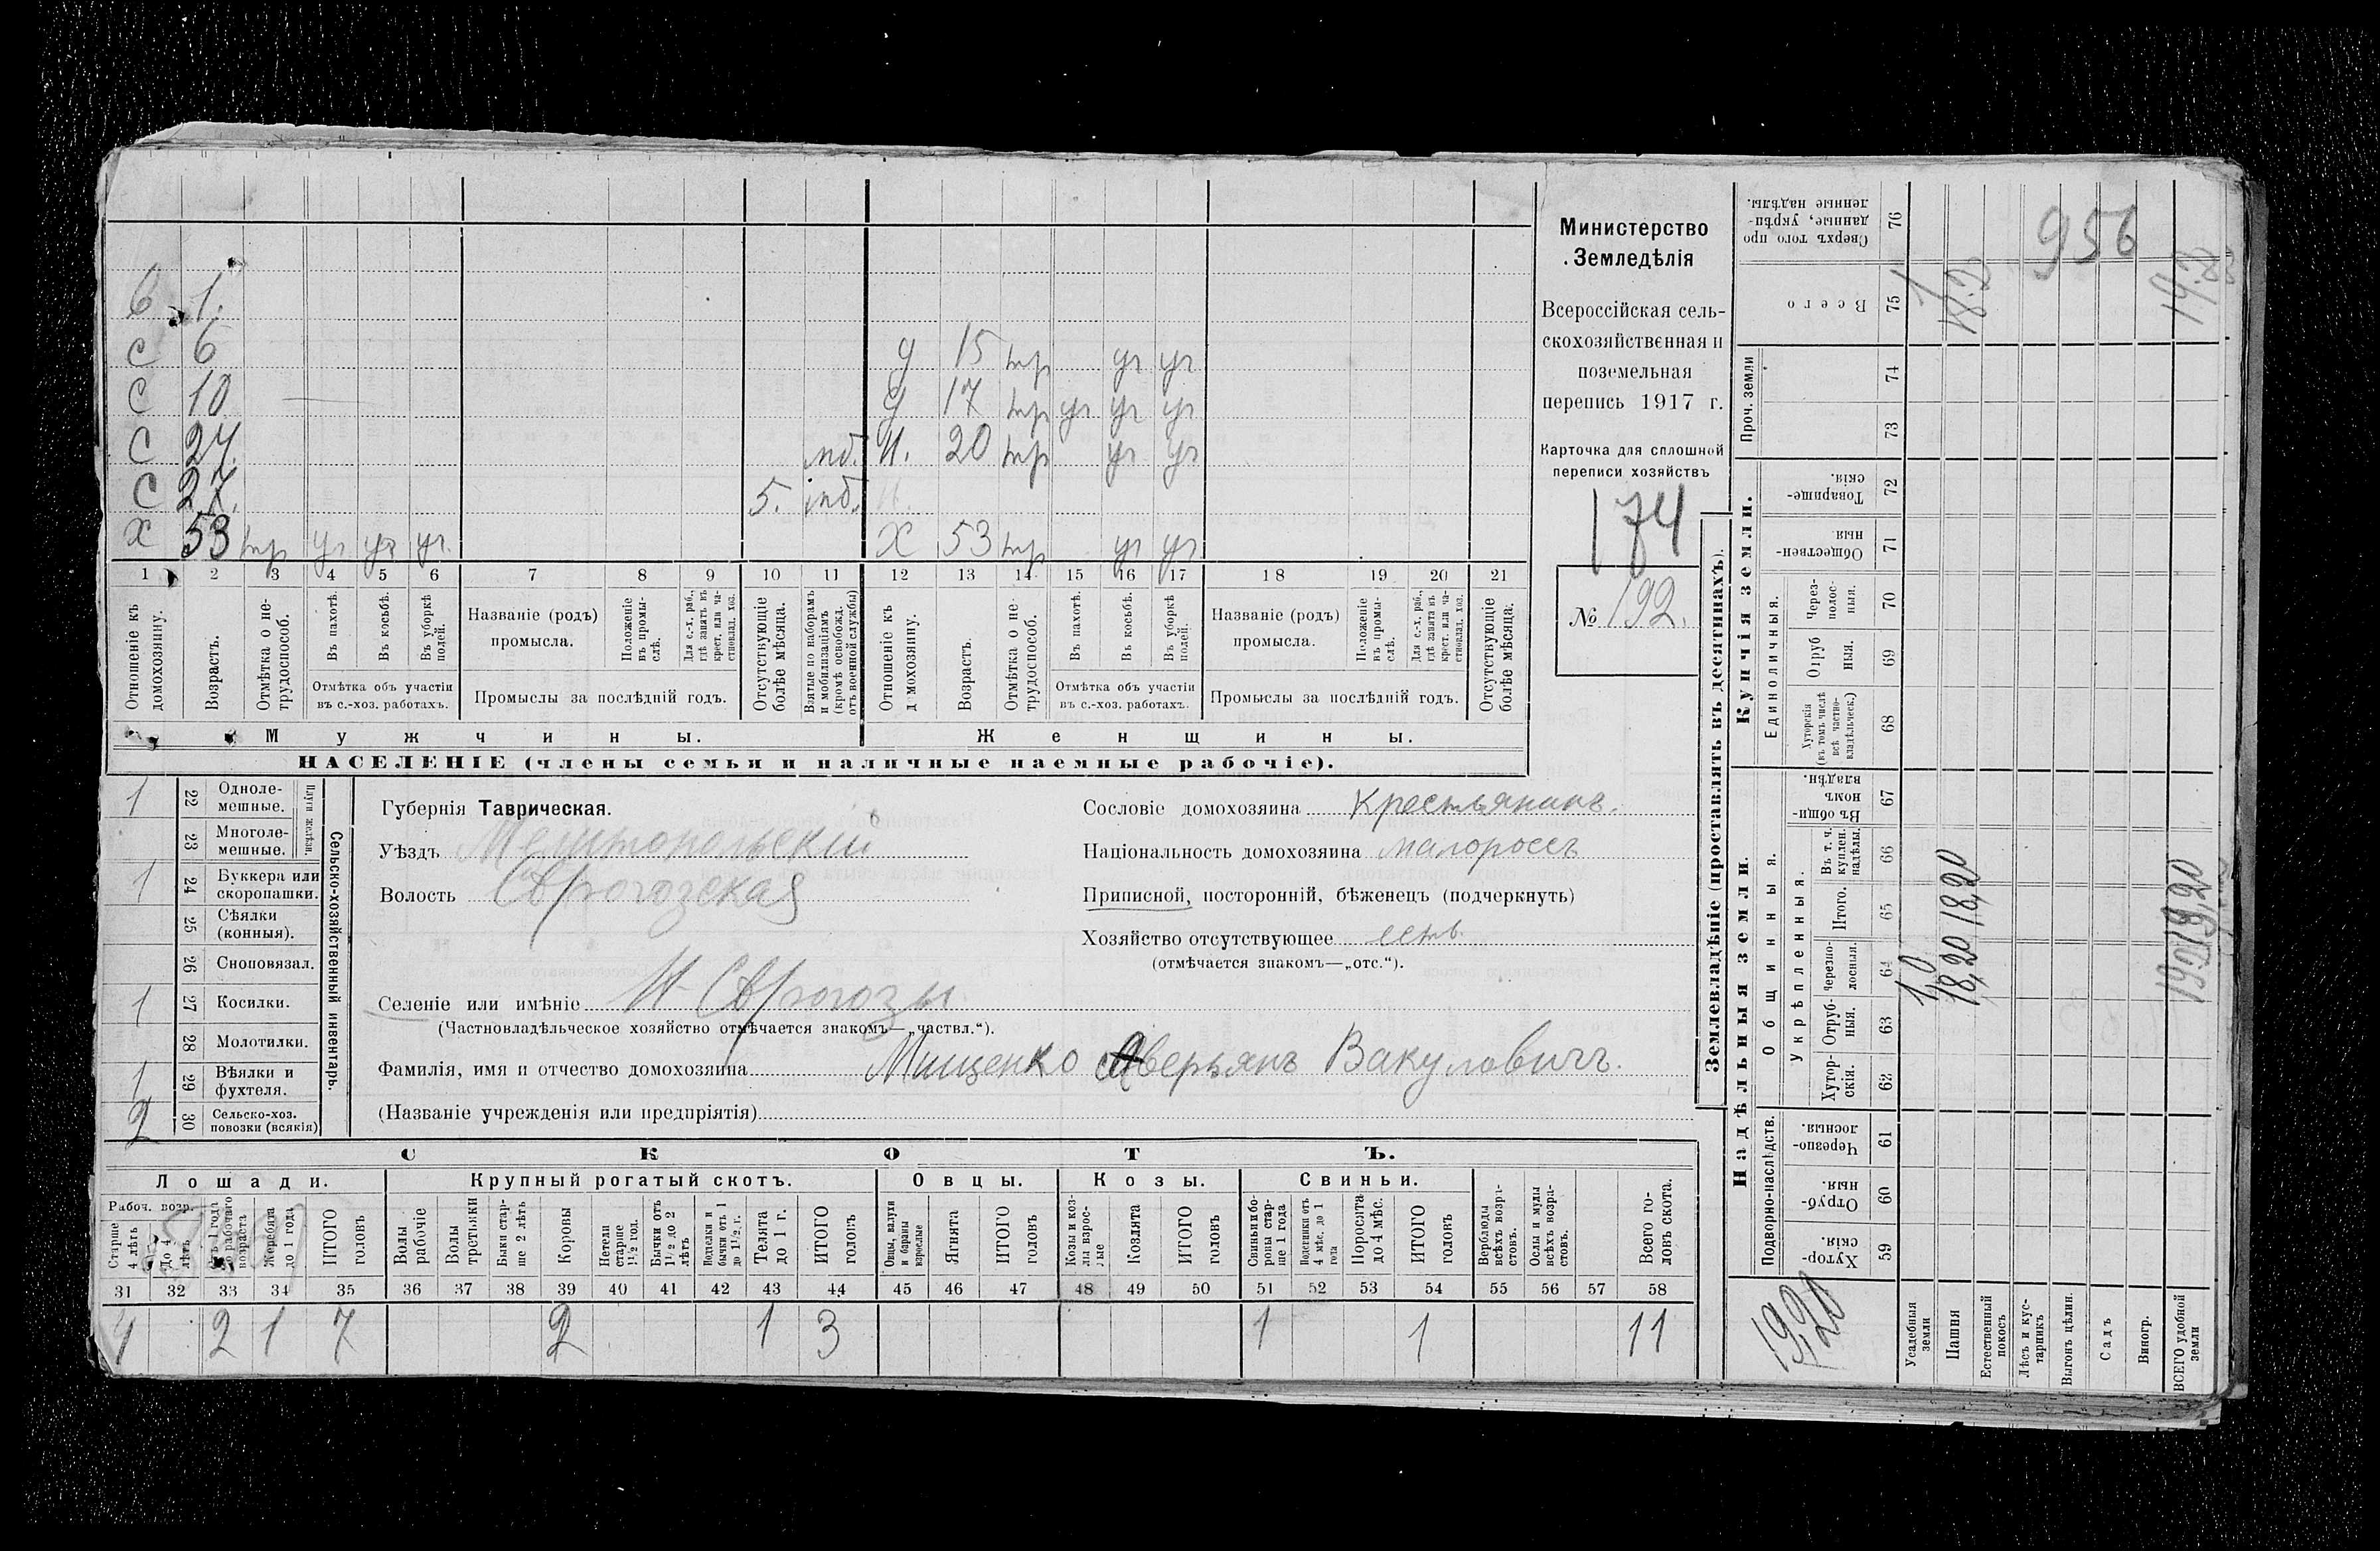 б 1.
с 6 д 15 тр уч уч
с 10 д 17 тр уч уч уч
с 24. мб. н. 20 тр уч уч
с 27. 5. мб.
х 53 тр уч уч уч. х 53 тр уч уч
1 2 3 4 5 6 7 8 9 10 11 12 13 14 15 16 17 18 19 20 21
Отношеніе къ домохозяину.
Возрастъ.
Отмѣтка о нетрудоспособ.
Въ пахотѣ.
Въ косьбѣ.
Въ уборкѣ полей.
Отмѣтка объ участіи въ с.-хоз. работахъ.
Названіе (родъ) промысла.
Положеніе въ промыслѣ.
Для с.-х. раб., гдѣ занятъ въ крест. или частновлад. хоз.
Промыслы за послѣдній годъ.
Отсутствующіе болѣе мѣсяца.
Взятые по наборамъ и мобилизаціямъ (кромѣ освобожд. отъ военной службы)
Отношеніе къ д мохозяину.
Возрастъ.
Отмѣтка о не трудоспособ.
Въ пахотѣ.
Въ косьбѣ.
Въ уборкѣ полей.
Отмѣтка объ участіи въ с.-хоз. работахъ.
Названіе (родъ) промысла.
Положеніе въ промыслѣ.
Для с.-х. раб., гдѣ занятъ въ крест. или частновлад. хоз.
Промыслы за послѣдній годъ.
Отсутствующіе болѣе мѣсяца.
Мужчины. Женщины.
НАСЕЛЕНІЕ (члены семьи и наличные наемные рабочіе).
Министерство
Земледѣлія
Всероссійская сель-
скохозяйственная и
поземельная
перепись 1917 г.
Карточка для сплошной
переписи хозяйствъ
174
№ 192.
Сельско-хозяйственный инвентарь.
Плуги желѣзн.
1 22 Одноле-мешные.
23 Многоле-мешные.
1 24 Буккера или скоропашки.
25 Сѣялки (конныя).
26 Сноповязал.
1 27 Косилки.
28 Молотилки.
1 29 Вѣялки и фухтеля.
2 30 Сельско-хоз. повозки (всякія)
Губернія Таврическая.
Уѣздъ Мелитопольскій
Волость
Селеніе или имѣніе
(Частновладѣльческое хозяйство отмѣчается знакомъ—„частвл.“).
Сословіе домохозяина Крестьянинъ.
Національность домохозяина малороссъ
Приписной, посторонній, бѣженецъ (подчеркнуть)
Хозяйство отсутствующее есть
(отмѣчается знакомъ—„отс.“).
Фамилія, имя и отчество домохозяина Мищенко Аверьянъ Вакуловичъ.
(Названіе учрежденія или предпріятія)
СКОТЪ.
Лошади. Крупный рогатый скотъ. Овцы. Козы. Свиньи.
Рабоч. возр.
Старше 4 лѣтъ
До 4 лѣтъ
Отъ 1 года до рабочаго возраста
Жеребята до 1 года
ИТОГО головъ
Волы рабочіе
Волы третьяки
Быки старше 2 лѣтъ
Коровы
Нетели старше 1½ год.
Бычки отъ 1½ до 2 лѣтъ
Подтелки и бычки отъ 1 до 1½ г.
Телята до 1 г.
ИТОГО головъ
Овцы, валухи и бараны взрослые
Ягнята
ИТОГО головъ
Козы и козлы взрослые
Козлята
ИТОГО головъ
Свиньи и боровы старше 1 года
Подсвинки отъ 4 мѣс. до 1 года
Поросята до 4 мѣс.
ИТОГО головъ
Верблюды всѣхъ возрастовъ.
Ослы и мулы всѣхъ возрастовъ.
Всего головъ скота.
31 32 33 34 35 36 37 38 39 40 41 42 43 44 45 46 47 48 49 50 51 52 53 54 55 56 57 58
4 2 1 7 2 1 3 1 1 11
Землевладѣніе (проставлять въ десятинахъ).
Надѣльныя земли.
Купчія земли.
Проч. земли
Подворно-наслѣдств.
Общинныя.
Укрѣпленныя.
Единоличныя.
Хуторскія. 59
Отрубныя. 60
Черезполосныя. 61
Хуторскія. 62
Отрубныя. 63
Черезполосныя. 64
Итого. 65
Въ т. ч. куплен. надѣлы. 66
Въ общинномъ владѣн. 67
Хуторскія (въ томъ числѣ всѣ частновладѣльческ.) 68
Отрубныя. 69
Черезполосныя. 70
Общественныя. 71
Товарищескія. 72
73
74
Всего 75
Сверхъ того проданные, укрѣпленные надѣлы. 76
Усадебныя земли 1,0 1
Пашня 18,20 18,20 18.2
Естественный покосъ
Лѣсъ и кустарникъ
Выгонъ цѣлин.
Садъ
Виногр.
ВСЕГО удобной земли 19.2
19,20
956